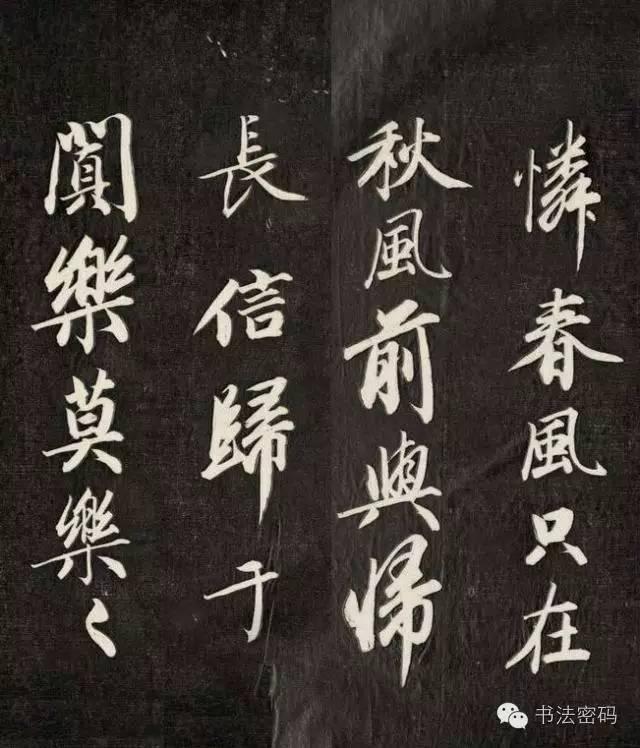 憐春風只在
秋風前與帰
長信歸于
闐樂莫樂〻
书法密码